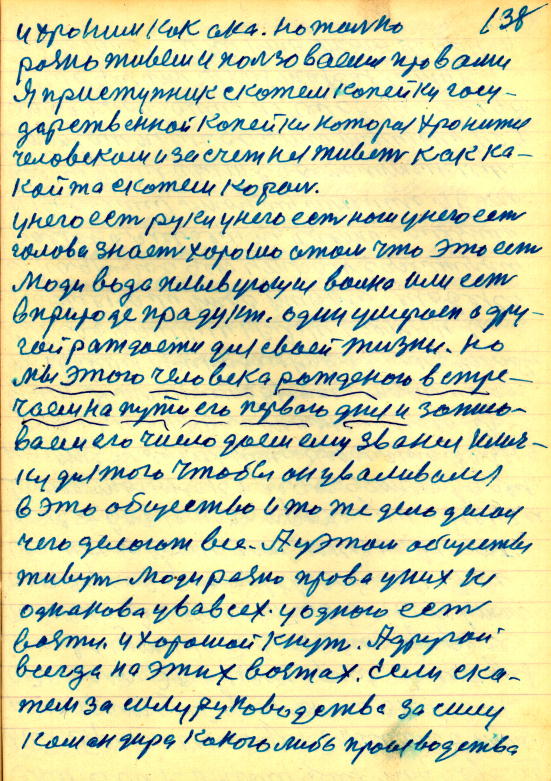 138
и храним как ока. но только
разно живем и ползоваемся правами
Я приступник скажем копейки госу-
дарственной копейки котора хранитя
человеком и за счет ней живет как ка-
кой та скажем корол.
у него ест руки у него ест ноги у него ест
голова знает хорошо о том что это ест
люди вода плывующия волна или ест
в природе прадукт. один умирает а дру-
гой раждается для своей жизни. но
мы этого человека рожденого встре-
чаем на пути его первого дня и записо-
ваем его число даем ему звания клич-
ку для того чтобы он уваливался
в это общество и то же дело делал
чего делают все. А у этом обществе
живут люди разно права у них не
однакова у вавсех. у одного ест
возжи. и хороший кнут. А другой
всегда на этих возжах. Если ска-
жем за силу руководства за силу
командира какого либо производства